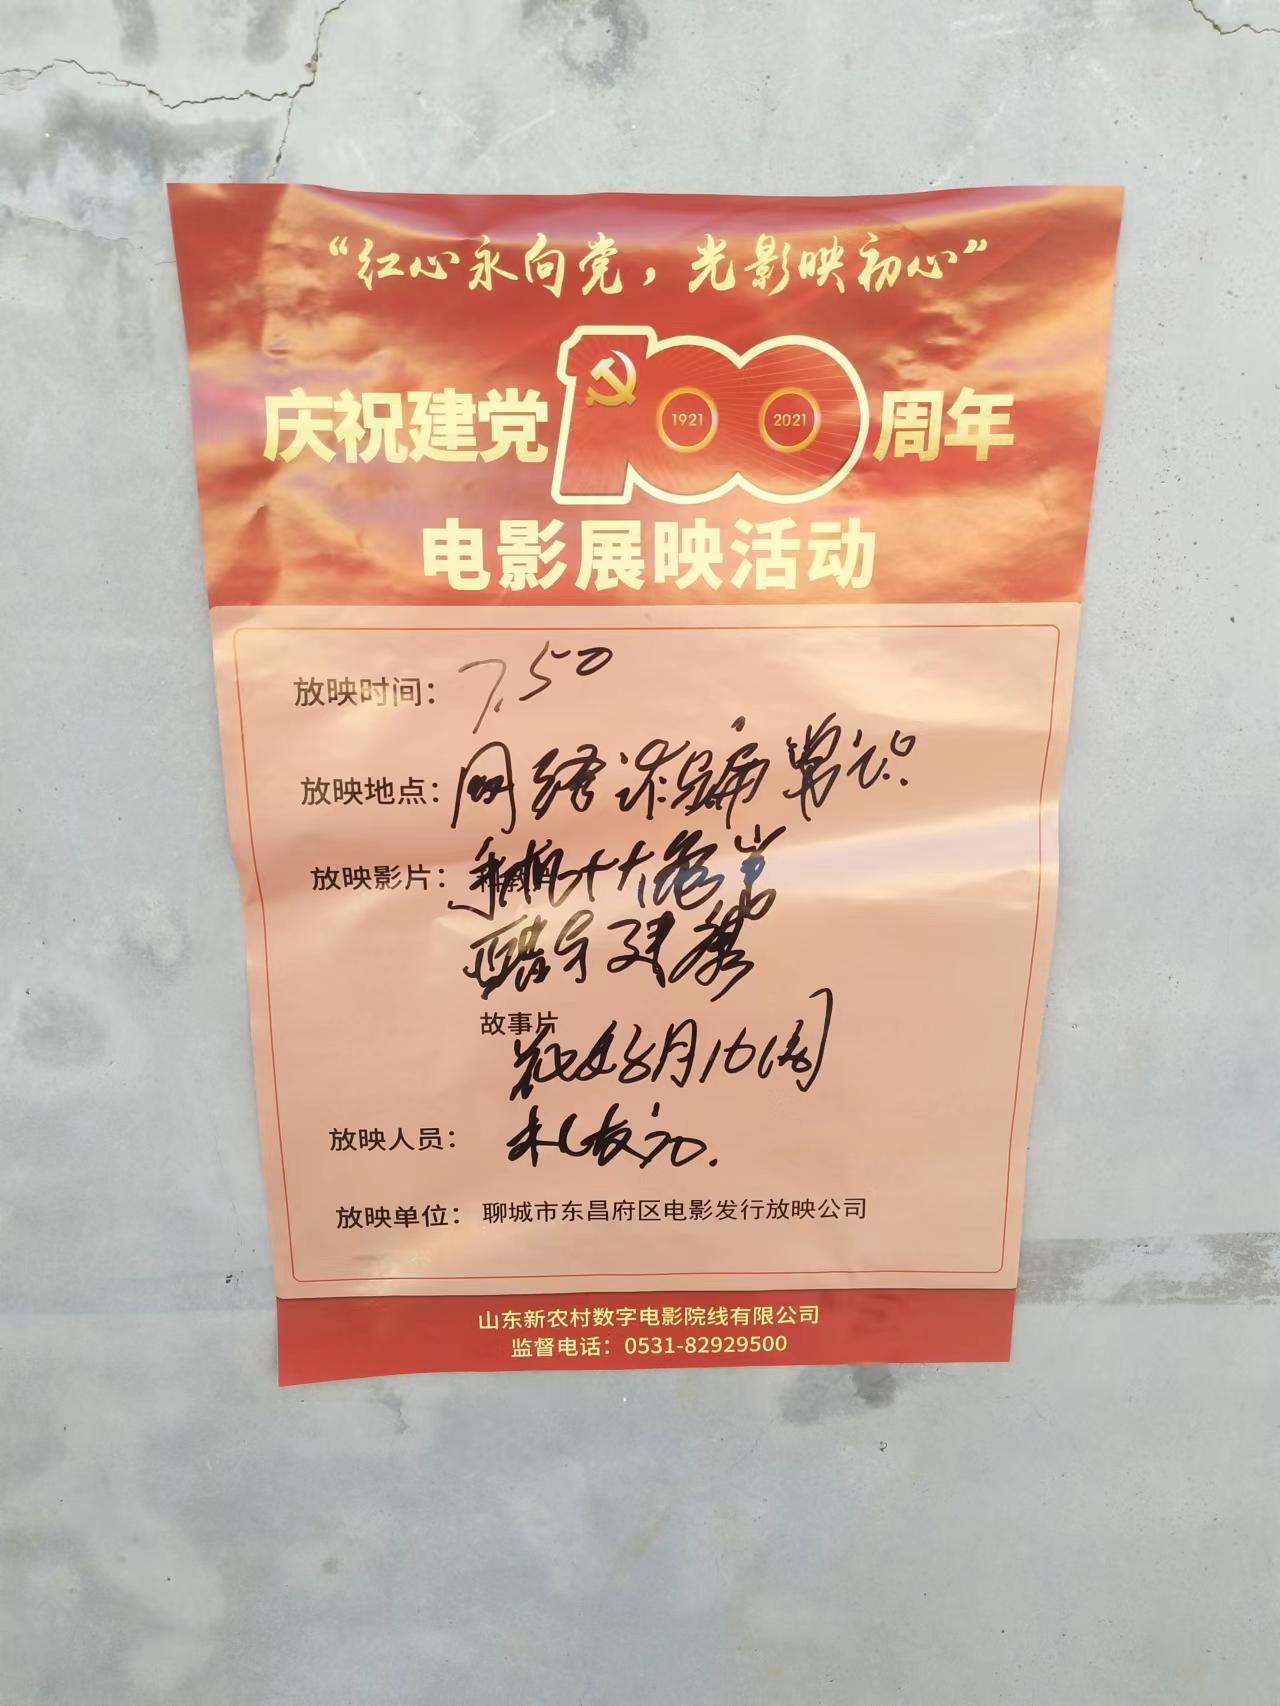 “红心永向党，光影映初心”
庆祝建党100周年
1921 2021
电影展映活动
放映时间：7.50
放映地点：网络诈骗常识
放映影片：手机十大危害
健康
故事片
8月16
放映人员：
放映单位：聊城市东昌府区电影发行放映公司
山东新农村数字电影院线有限公司
监督电话：0531-82929500